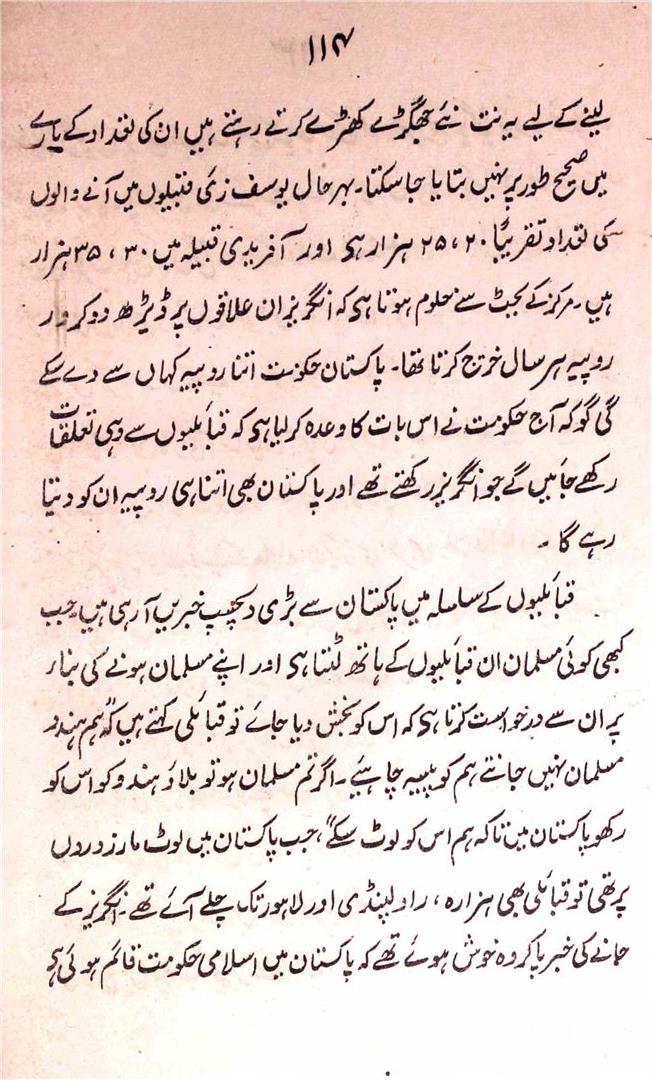 ۱۱۴
لینے کے لیے یہ نت نئے جھگڑے کھڑے کرتے رہتے ہیں ان کی تعداد کے بارے
میں صحیح طور پر نہیں بتایا جا سکتا۔ بہرحال یوسف زئی قبیلوں میں آنے والوں
کی تعداد تقریباً ۲۰، ۲۵ ہزار ہی اور آفریدی قبیلہ میں ۳۰، ۳۵ ہزار
ہیں۔ مرکز کے بجٹ سے معلوم ہوتا ہی کہ انگریز ان علاقوں پر ڈیڑھ دو کروڑ
روپیہ ہر سال خرچ کرتا تھا۔ پاکستان حکومت اتنا روپیہ کہاں سے دے سکے
گی گو کہ آج حکومت نے اس بات کا وعدہ کر لیا ہی کہ قبائلیوں سے وہی تعلقات
رکھے جائیں گے جو انگریز رکھتے تھے اور پاکستان بھی اتنا ہی روپیہ ان کو دیتا
رہے گا۔
قبائلیوں کے سلسلہ میں پاکستان سے بڑی دلچسپ خبریں آ رہی ہیں، جب
کبھی کوئی مسلمان ان قبائلیوں کے ہاتھ لٹتا ہی اور اپنے مسلمان ہونے کی بناء
پر ان سے درخواست کرتا ہی کہ اس کو بخش دیا جائے تو قبائلی کہتے ہیں کہ "ہم ہندو
مسلمان نہیں جانتے ہم کو پیسہ چاہئیے۔ اگر تم مسلمان ہو تو بلاؤ ہندو کو اس کو
رکھو پاکستان میں تاکہ ہم اس کو لوٹ سکے"، جب پاکستان میں لوٹ مار زوروں
پر تھی تو قبائلی بھی ہزارہ، راولپنڈی اور لاہور تک چلے آئے تھے۔ انگریز کے
جانے کی خبر پا کر وہ خوش ہوئے تھے کہ پاکستان میں اسلامی حکومت قائم ہوئی ہی